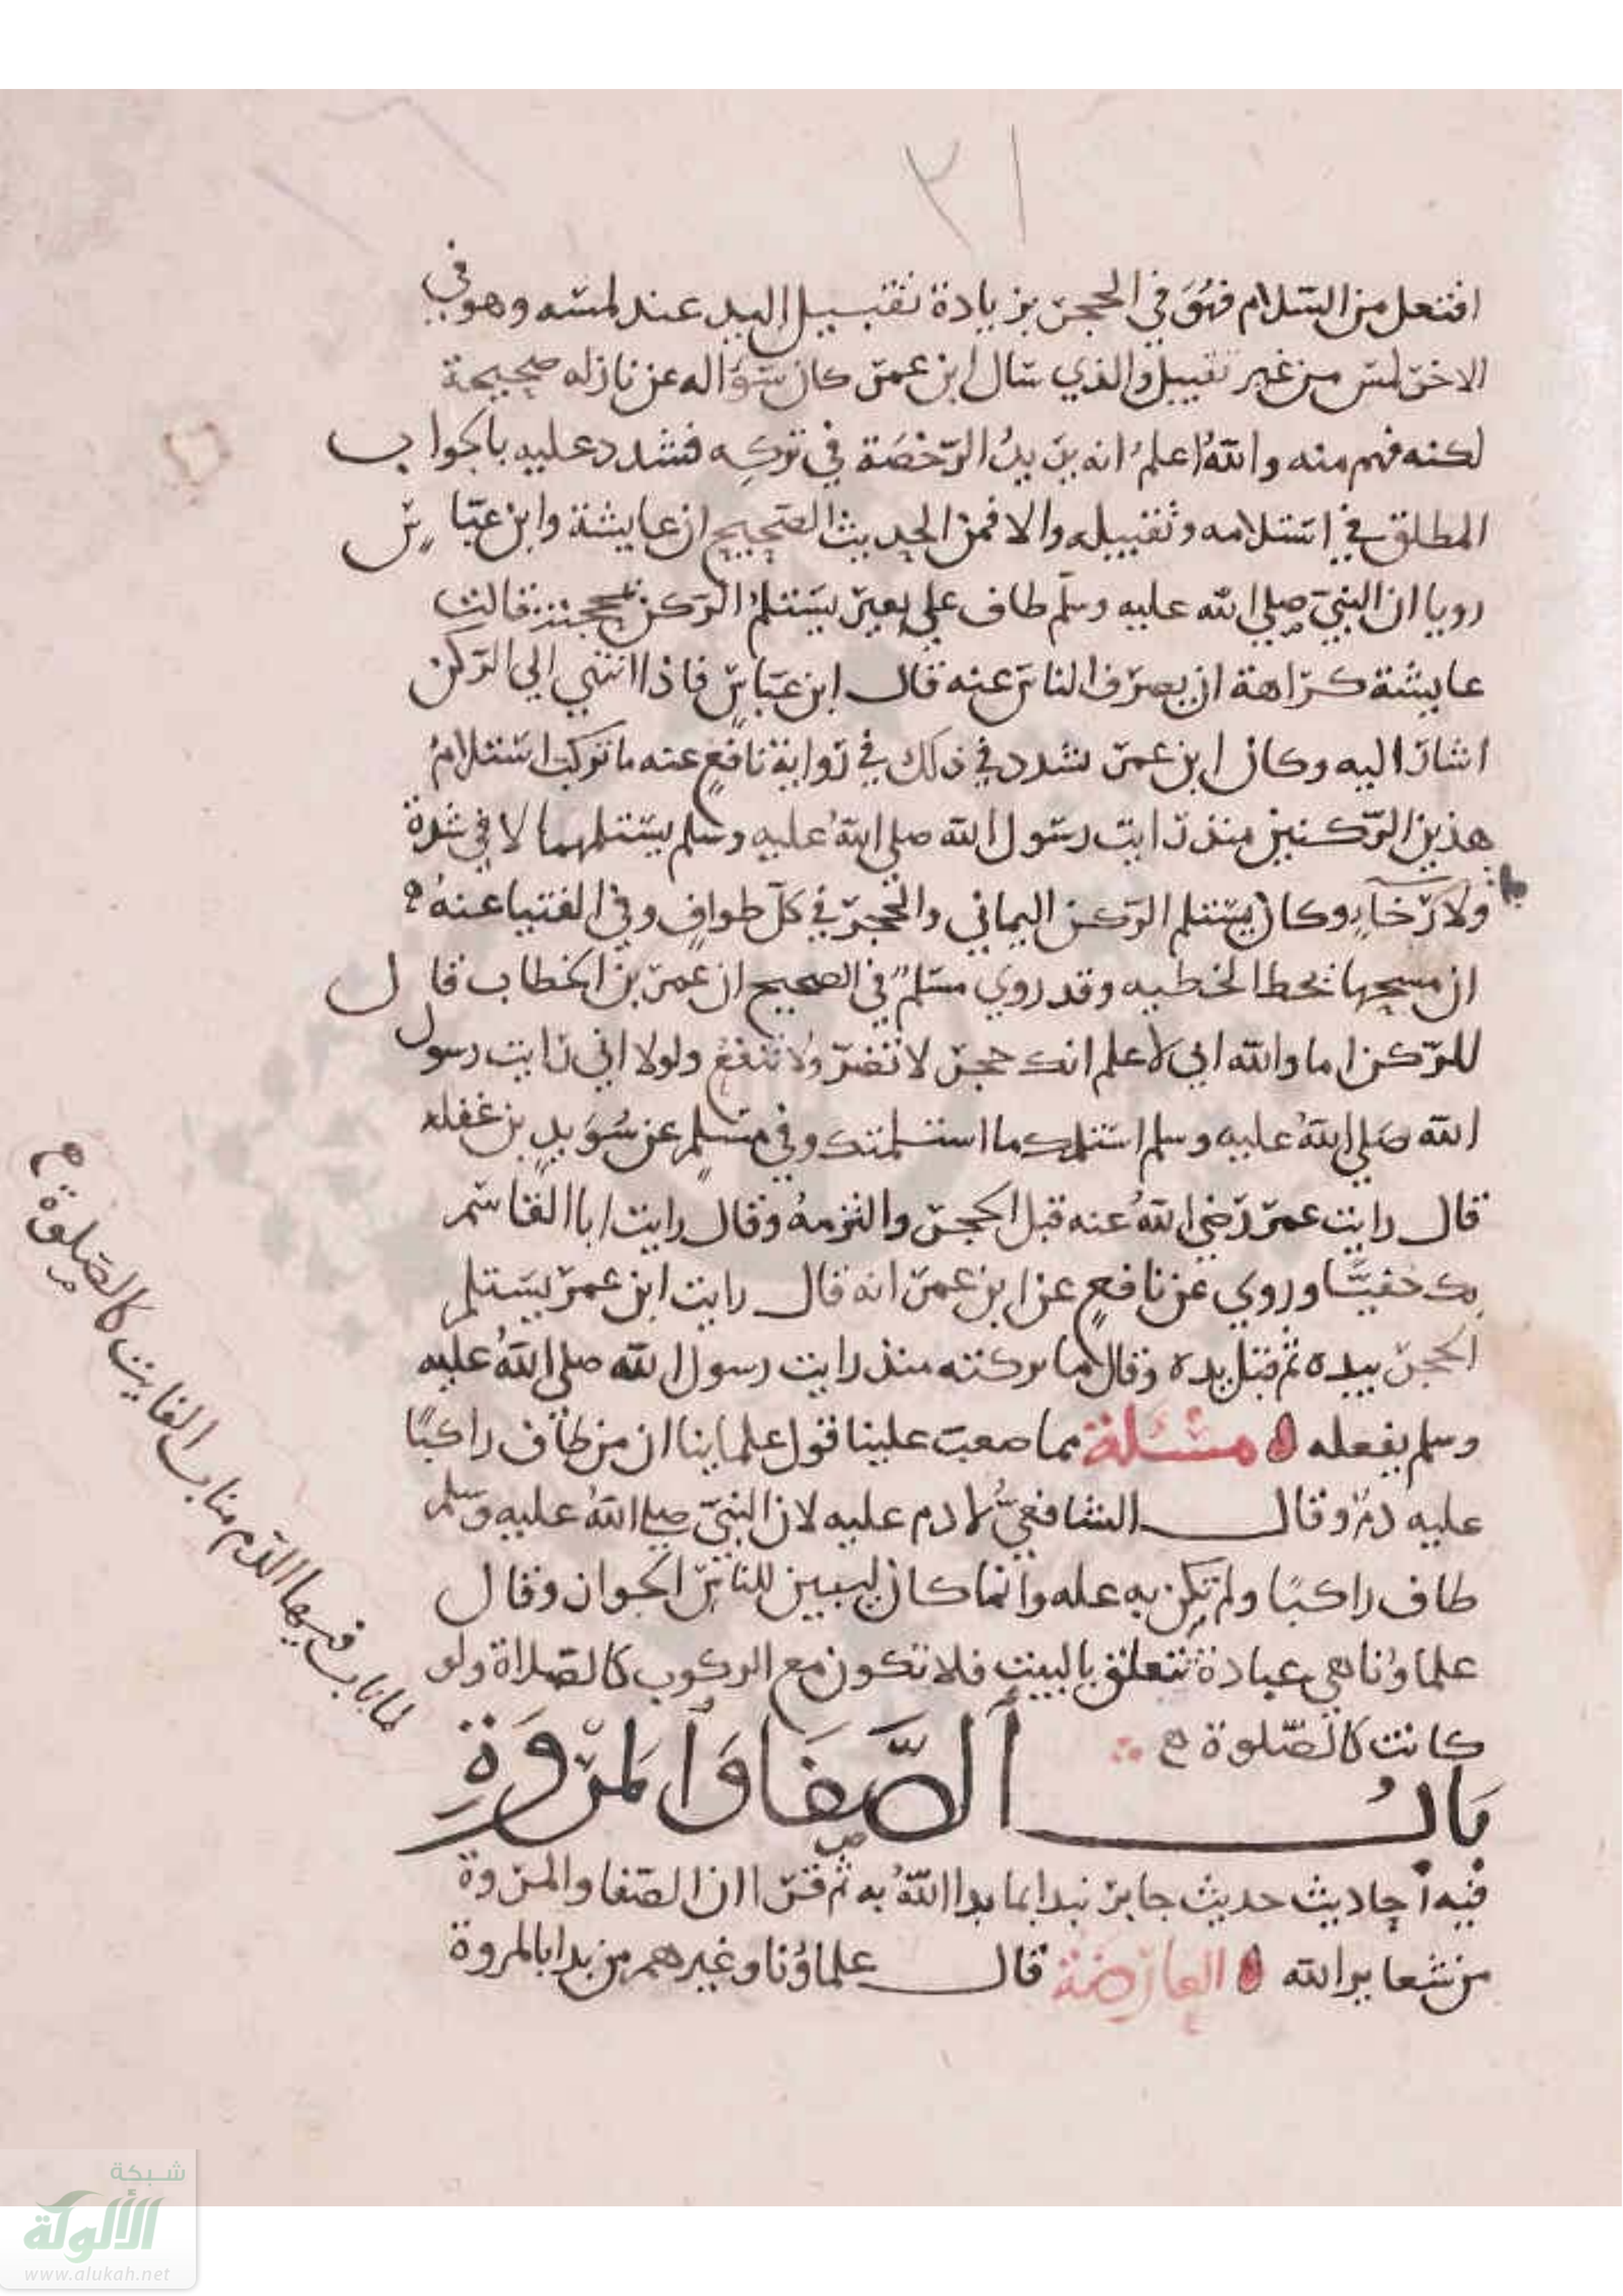 افتعل من السلام فهو في الحجر بزيادة تقبيل اليد عند لمسه وهو في
الاخر لمس من غير تقبيل والذي سال ابن عمر كان سؤاله عن نازله صحيحة
لكنه فهم منه والله اعلم انه يريد الرخصة في تركه فشدد عليه بالجواب
المطلق في استلامه وتقبيله والا فمن الحديث الصحيح ان عايشة وابن عباس
رويا ان النبي صلى الله عليه وسلم طاف على بعير يستلم الركن بمحجن قالت
عايشة كراهة ان يصرف الناس عنه قال ابن عباس فاذا انتهي الي الركن
اشار اليه وكان ابن عمر يشدد في ذلك في رواية نافع عنه ما تركت استلام
هذين الركنين منذ رايت رسول الله صلي الله عليه وسلم يستلمهما لا في شدة
ولا رخاء وكان يستلم الركن اليماني والحجر في كل طواف وفي الفتيا عنه
ان مسحهما يحط الخطيه وقد روي مسلم في الصحيح ان عمر بن الخطاب قال
للركن اما والله اني لاعلم انك حجر لا تضر ولا تنفع ولولا اني رايت رسول
الله صلي الله عليه وسلم استلمك ما استلمتك وفي مسلم عن سويد بن غفله
قال رايت عمر رضي الله عنه قبل الحجر والتزمه وقال رايت ابا القاسم
بك حفيا وروي عن نافع عن ابن عمر انه قال رايت ابن عمر يستلم
الحجر بيده ثم قبل يده وقال ما تركته منذ رايت رسول الله صلي الله عليه
وسلم يفعله ه مسئلة مما صعب علينا قول علماينا ان من طاف راكبا
عليه دم وقال الشافعي لا دم عليه لان النبي صلي الله عليه وسلم
طاف راكبا ولم تكن به عله وانما كان ليبين للناس الجواز وقال
علماؤنا هي عبادة تتعلق بالبيت فلا تكون مع الركوب كالصلاة ولو
كانت كالصلوة
لما ناب فيها الدم مناب الفايت كالصلوة
باب الصفا والمروة
فيه احاديث حديث جابر نبدا بما بدا الله به ثم قرا ان الصفا والمروة
من شعاير الله ه العارضة قال علماؤنا وغيرهم من بدا بالمروة
شبكة
الألوكة
www.alukah.net